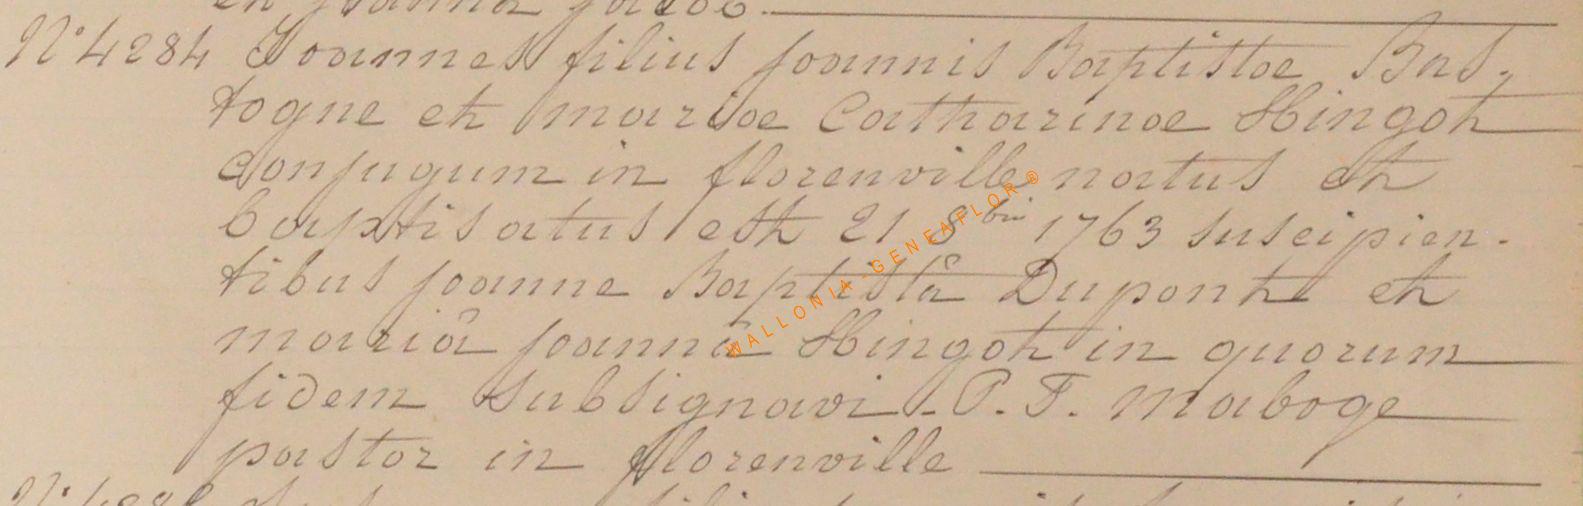 en joanna jacob.
N° 4284 Joannes filius joannis Baptistoe Bas-
togne et marioe Catharinoe Hingot
conjugum in florenville natus et
baptisatus est 21 8bris 1763 suscipien-
tibus joanne Baptistâ Dupont et
mariâ joannâ Hingot in quorum
fidem subsignavi - P. F. Maboge
pastor in florenville
WALLONIA-GENEAFLOR®